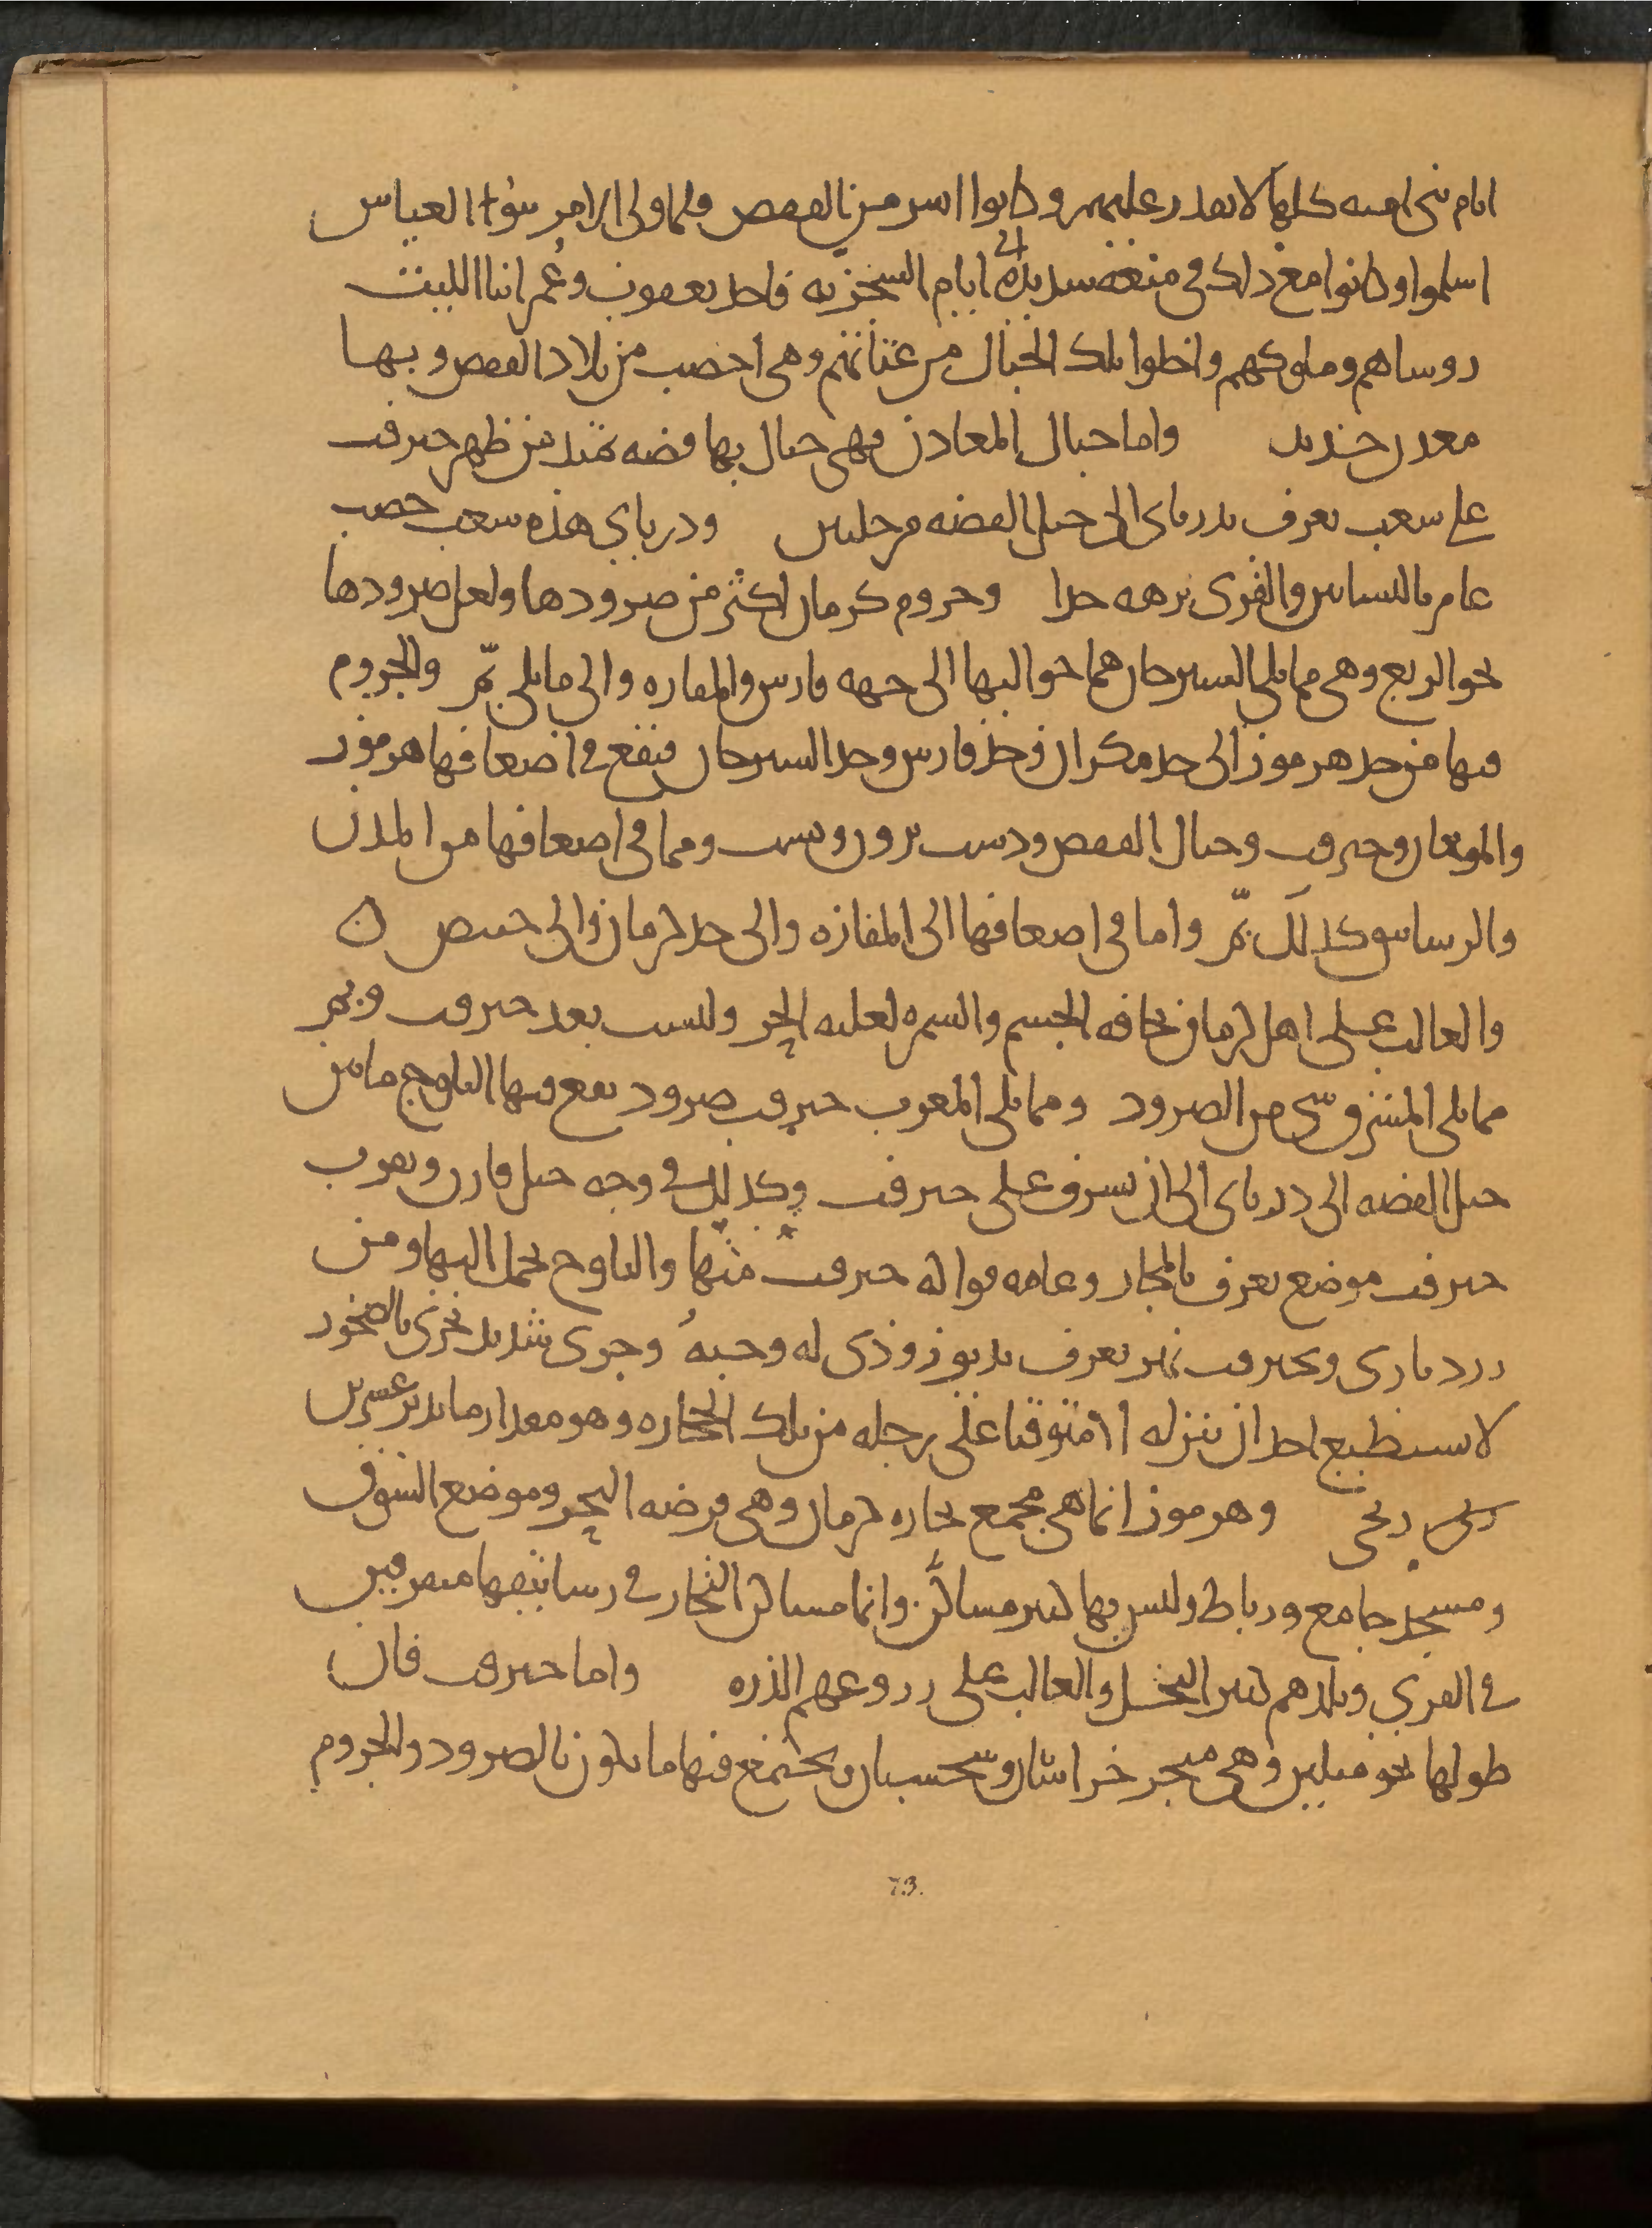 ايام بنى اميه كلها لا يقدر عليهم وكانوا اشر من القفص فلما ولى الامر بنوا العباس
اسلموا وكانوا مع ذلك فى منعه شديده الى ايام السجزيه فاخذ يعقوب وعمر ابنا الليث
روساهم وملوكهم واخلوا تلك الجبال من عتاتهم وهى اخصب من بلاد القفص وبها
معدن حديد واما جبال المعادن فهى جبال بها فضه تمتد من ظهر جيرفت
على شعب يعرف بدرباى الى جبل الفضه مرحلتين ودرباى هذه شعب خصب
عامر بالبساتين والقرى نزهه جدا وجروم كرمان اكثر من صرودها ولعل صرودها
نحو الربع وهى مما يلى السيرجان مما حواليها الى جهه فارس والمفازه والى ما يلى بم والجروم
فيها من حد هرموز الى حد مكران وحد فارس وحد السيرجان فيقع فى اضعافها هرموز
والمنوقان وجيرفت وجبال القفص ودست برو رويست ومما فى اضعافها من المدن
والرساتيق وكذلك بم واما فى اضعافها الى المفازه والى حد كرمان والى خبيص ن
والغالب على اهل كرمان نحافه الجسم والسمره لغلبه الحر وليست بعد جيرفت وبم
مما يلى المشرق شى من الصرود ومما يلى المغرب جيرفت صرود يقع فيها الثلوج ما بين
جبل الفضه الى درباى الى ان يشرف على جيرفت وكذلك فى وجه جبل قارن وبقرب
جيرفت موضع يعرف بالمجان وعامه فواكه جيرفت منها والثلوج يحمل اليها ومن
درد بارى وبجيرفت نهر يعرف بديوزوذى له وجبه وجرى شديد يجرى بالصخور
لا يستطيع احد ان ينزله الا متوقيا على رجله من تلك الحجاره وهو مقدار ما يدير عشرين
رحى وهرموز انما هى مجمع تجاره كرمان وهى فرضه البحر وموضع السوق
ومسجد جامع ورباط وليس بها كثير مساكن وانما مساكن التجار فى رساتيقها متفرقين
فى القرى وبلدهم كثير النخل والغالب على زروعهم الذره واما جيرفت فان
طولها نحو ميلين وهى متجر خراسان وسجستان ويجتمع فيها ما يكون بالصرود والجروم
73.